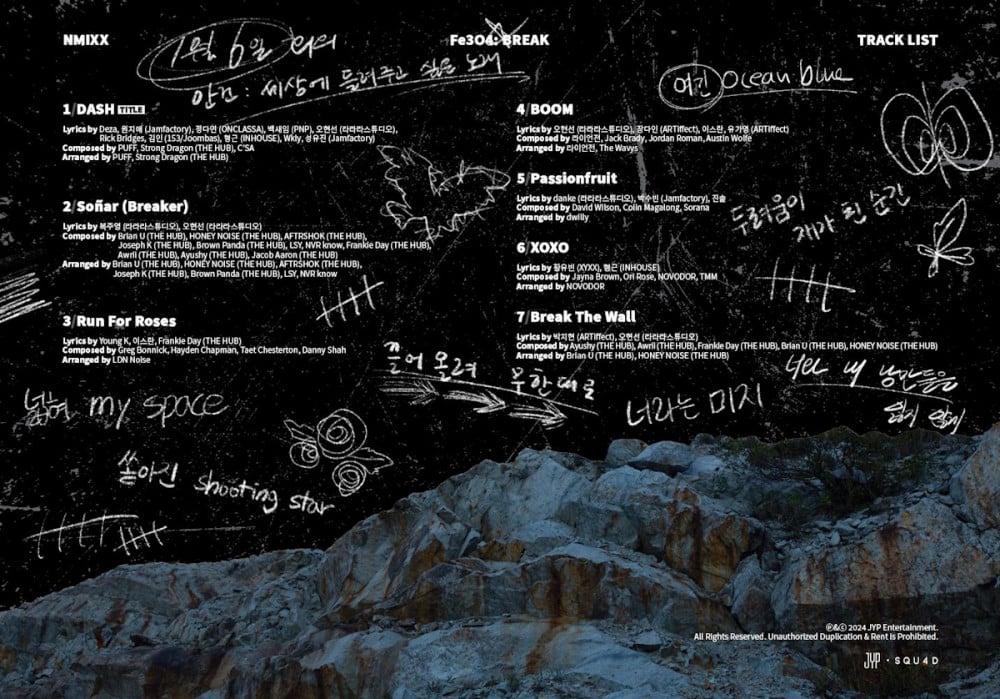 NMIXX
Fe3O4: BREAK
TRACK LIST
1월 6일 회의
안건 : 세상에 들려주고 싶은 노래
여긴 Ocean blue
1/DASH TITLE
Lyrics by Deza, 원지애 (Jamfactory), 정다연 (ONCLASSA), 백새임 (PNP), 오현선 (라라라스튜디오),
Rick Bridges, 김인 (153/Joombas), 형근 (INHOUSE), Wkly, 성유진 (Jamfactory)
Composed by PUFF, Strong Dragon (THE HUB), C'SA
Arranged by PUFF, Strong Dragon (THE HUB)
2/Soñar (Breaker)
Lyrics by 복주영 (라라라스튜디오), 오현선 (라라라스튜디오)
Composed by Brian U (THE HUB), HONEY NOISE (THE HUB), AFTRSHOK (THE HUB),
Joseph K (THE HUB), Brown Panda (THE HUB), LSY, NVR know, Frankie Day (THE HUB),
Awrii (THE HUB), Ayushy (THE HUB), Jacob Aaron (THE HUB)
Arranged by Brian U (THE HUB), HONEY NOISE (THE HUB), AFTRSHOK (THE HUB),
Joseph K (THE HUB), Brown Panda (THE HUB), LSY, NVR know
3/Run For Roses
Lyrics by Young K, 이스란, Frankie Day (THE HUB)
Composed by Greg Bonnick, Hayden Chapman, Taet Chesterton, Danny Shah
Arranged by LDN Noise
4/BOOM
Lyrics by 오현선 (라라라스튜디오), 장다인 (ARTiffect), 이스란, 유가영 (ARTiffect)
Composed by 라이언전, Jack Brady, Jordan Roman, Austin Wolfe
Arranged by 라이언전, The Wavys
5/Passionfruit
Lyrics by danke (라라라스튜디오), 박수빈 (Jamfactory), 진솔
Composed by David Wilson, Colin Magalong, Sorana
Arranged by dwilly
6/XOXO
Lyrics by 황유빈 (XYXX), 형근 (INHOUSE)
Composed by Jayna Brown, Ori Rose, NOVODOR, TMM
Arranged by NOVODOR
7/Break The Wall
Lyrics by 박지현 (ARTiffect), 오현선 (라라라스튜디오)
Composed by Ayushy (THE HUB), Awrii (THE HUB), Frankie Day (THE HUB), Brian U (THE HUB), HONEY NOISE (THE HUB)
Arranged by Brian U (THE HUB), HONEY NOISE (THE HUB)
두려움이
재가 된 순간
끌어 올려
무한대로
넓혀 my space
너라는 미지
너와 내 낭만들을
쏟아진 shooting star
℗&© 2024 JYP Entertainment.
All Rights Reserved. Unauthorized Duplication & Rent is Prohibited.
JYP · SQU4D